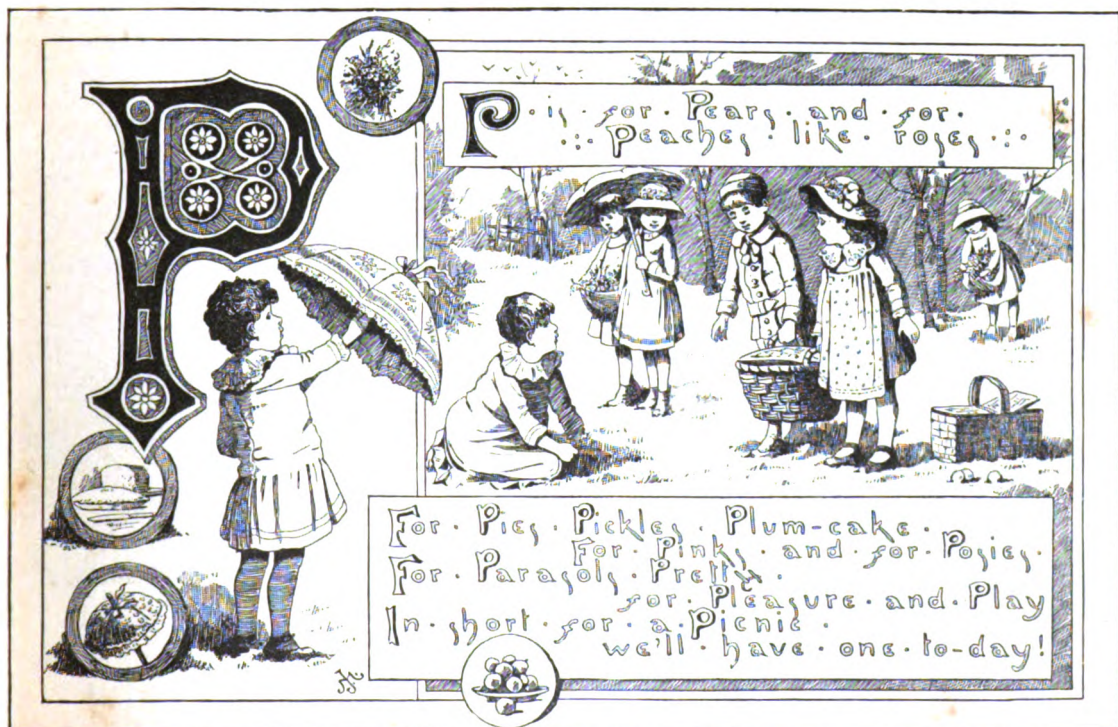 P
P · is · for · Pears · and · for ·
Peaches · like · roses
For · Pies · Pickles · Plum-cake ·
For · Pinks · and · for · Posies ·
For · Parasols · Pretty ·
for · Pleasure · and · Play
In · short · for · a · Picnic ·
we'll · have · one · to-day!